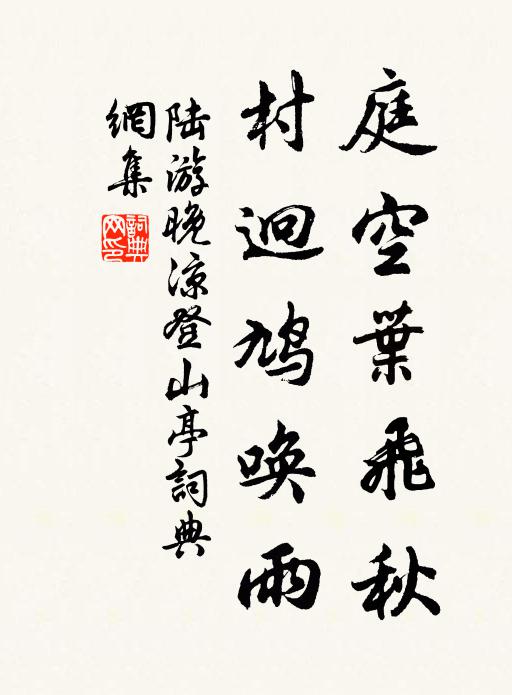 庭空葉飛秋
村迴鳩喚雨
陆游晚涼登山亭詞典
網集
詞典網印